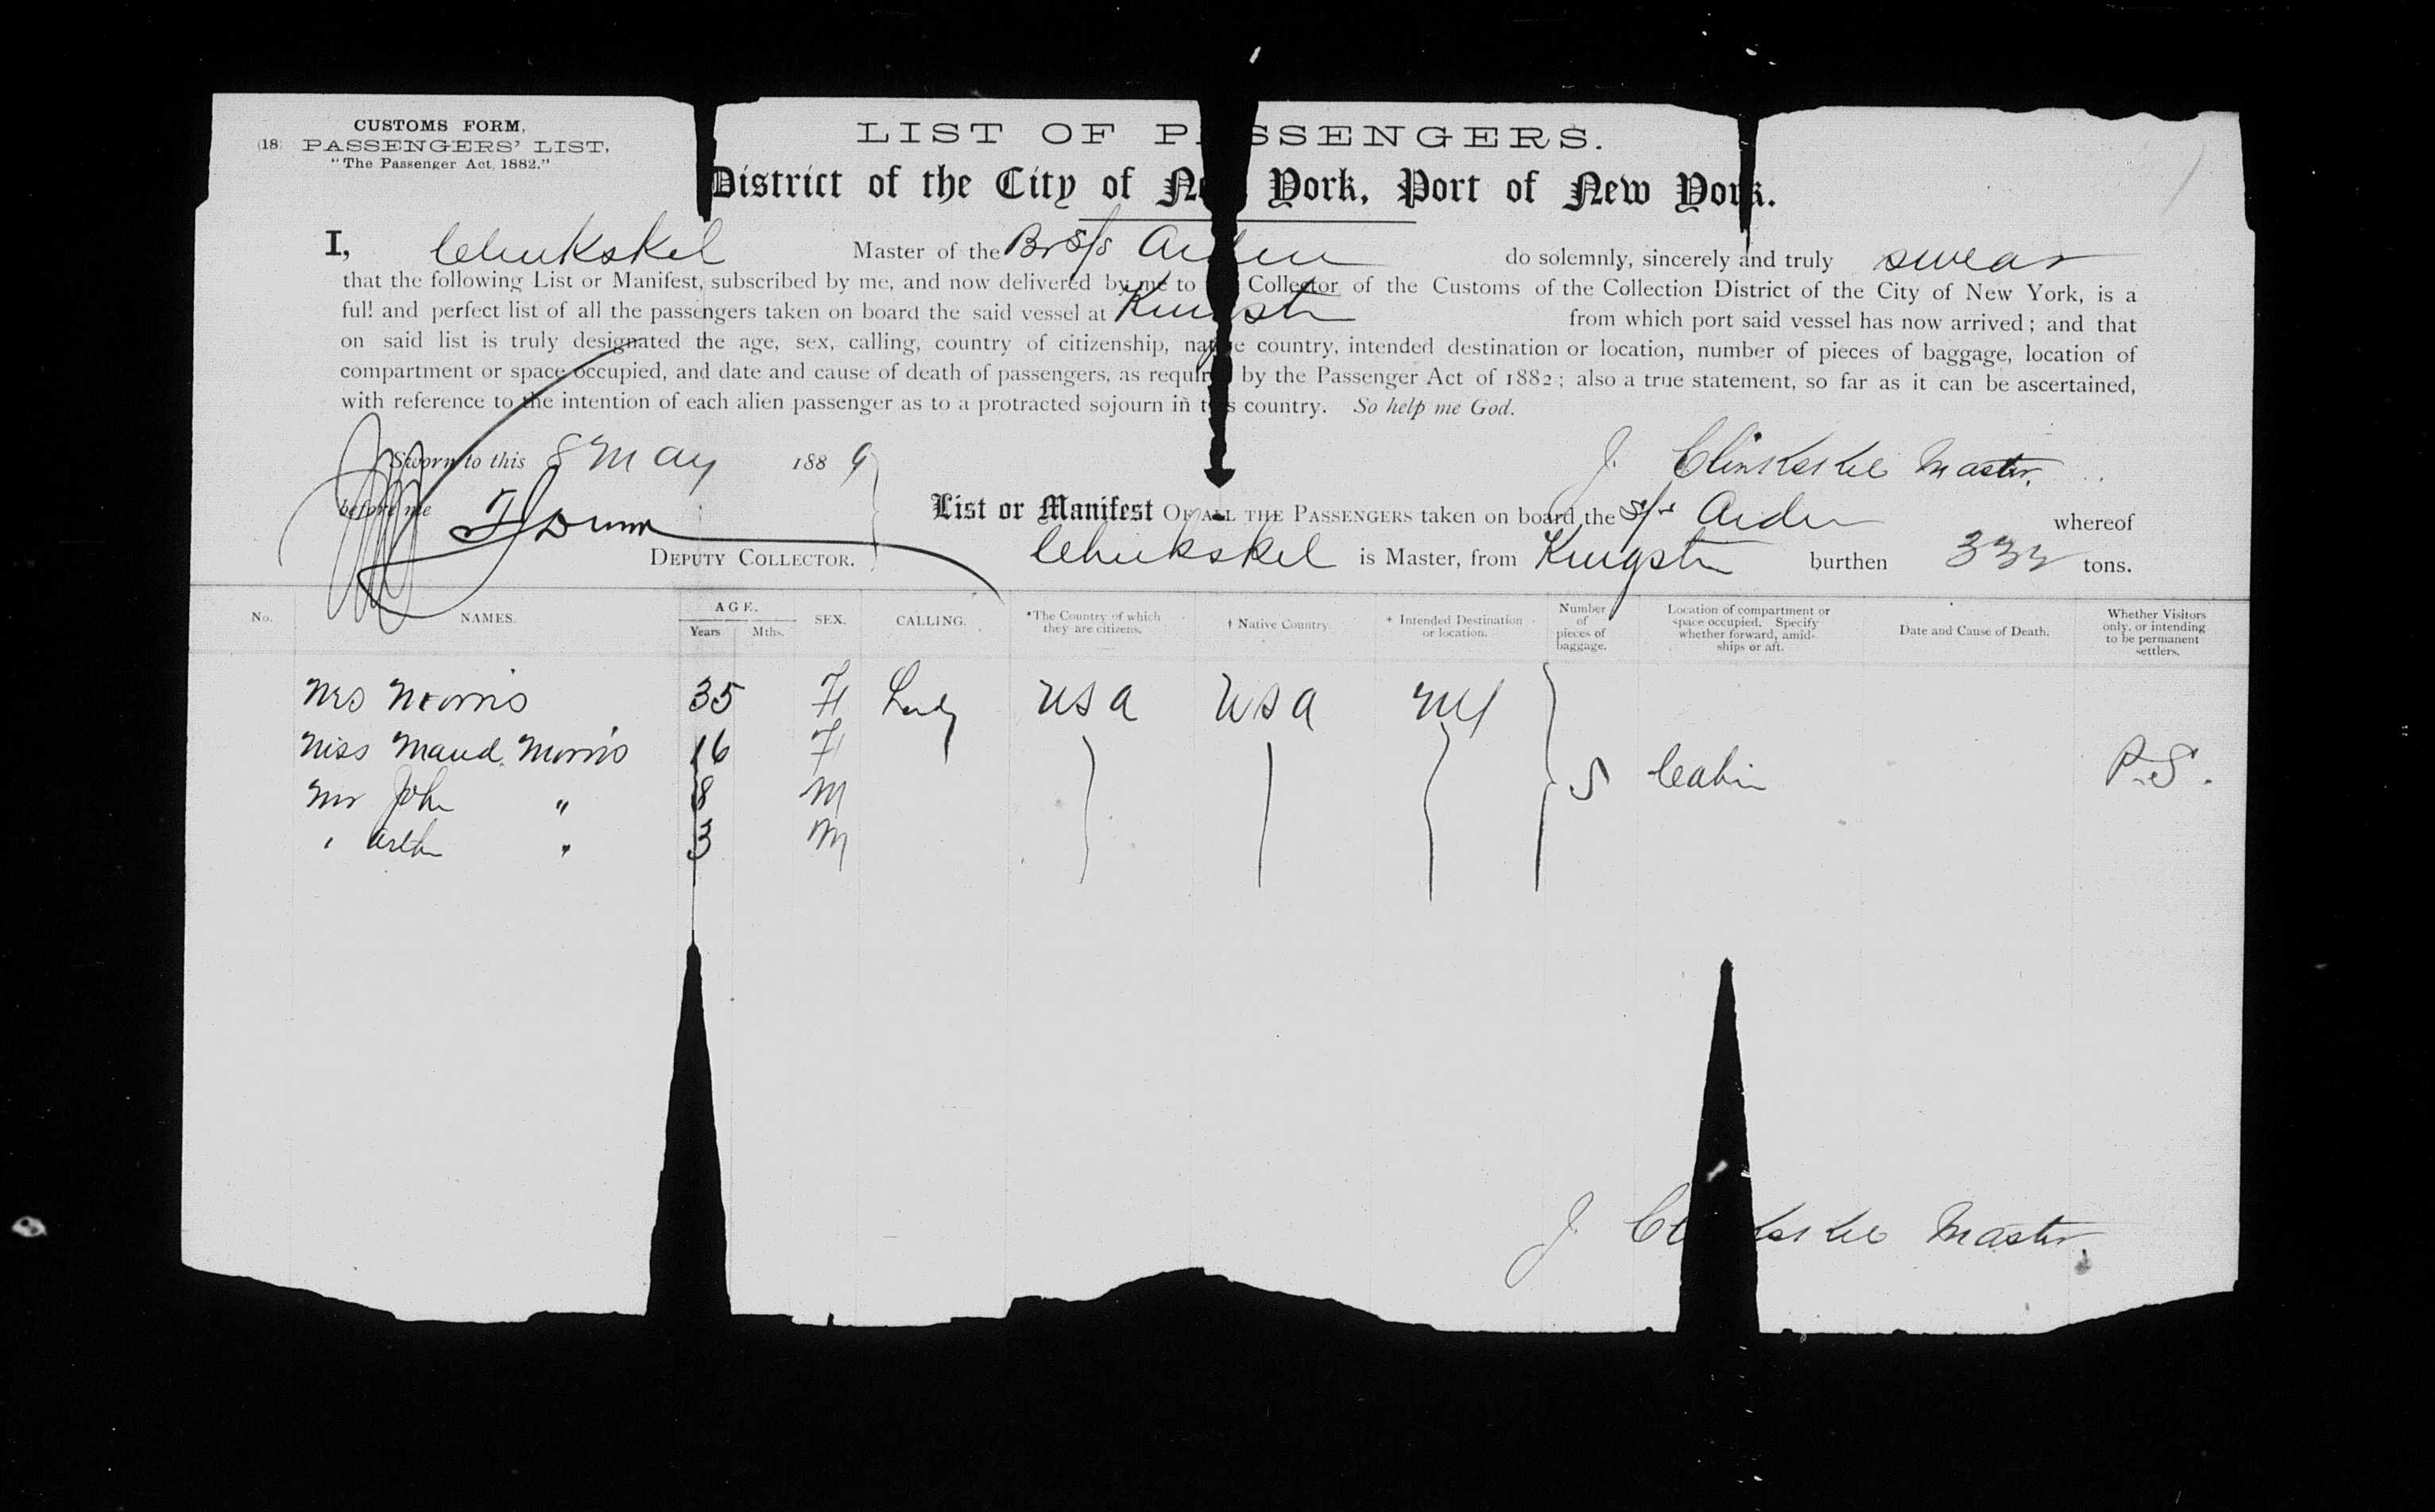 CUSTOMS FORM,
(18) PASSENGERS' LIST,
"The Passenger Act, 1882."
LIST OF P SSENGERS.
District of the City of Ne York, Port of New York.
I, Clinkskel Master of the Br s/s Arden do solemnly, sincerely and truly swear
that the following List or Manifest, subscribed by me, and now delivered by me to Collector of the Customs of the Collection District of the City of New York, is a
full and perfect list of all the passengers taken on board the said vessel at Kingston from which port said vessel has now arrived; and that
on said list is truly designated the age, sex, calling, country of citizenship, native country, intended destination or location, number of pieces of baggage, location of
compartment or space occupied, and date and cause of death of passengers, as required by the Passenger Act of 1882; also a true statement, so far as it can be ascertained,
with reference to the intention of each alien passenger as to a protracted sojourn in this country. So help me God.
Sworn to this 8 May 1889
J. Clinkskel Master.
before me
DEPUTY COLLECTOR.
List or Manifest OF ALL THE PASSENGERS taken on board the s/s Arden whereof
Clinkskel is Master, from Kingston burthen 332 tons.
No. NAMES. AGE. Years Mths. SEX. CALLING. *The Country of which they are citizens. † Native Country. + Intended Destination or location. Number of pieces of baggage. Location of compartment or space occupied. Specify whether forward, amidships or aft. Date and Cause of Death. Whether Visitors only, or intending to be permanent settlers.
Mrs Morris 35 F Lady USA USA NY
Miss Maud Morris 16 F
Mr John " 8 M 5 Cabin P.S.
" Arthur " 3 M
J. Cl kskel Master.